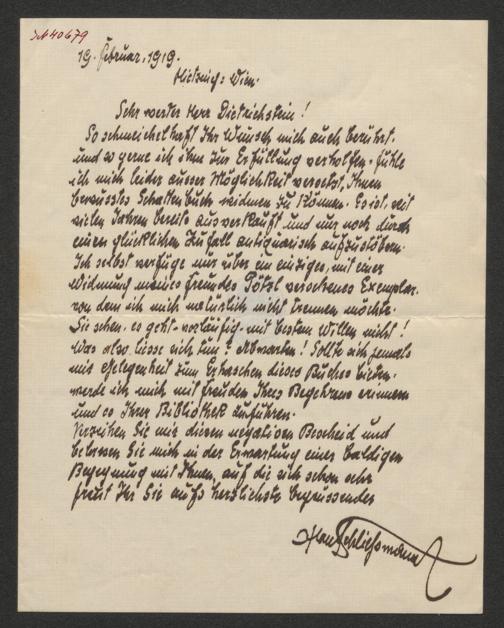 JN40679
19. Februar, 1919.
Hietzing: Wien.
Sehr werter Herr Dietrichstein!
So schmeichelhaft Ihr Wunsch mich auch berührt.
und so gerne ich ihm zur Erfüllung verholfen, fühle
ich mich leider ausser Möglichkeit versetzt, Ihnen
bewusstes Schattenbuch widmen zu können. Es ist seit
vielen Jahren bereits ausverkauft und nur noch durch
einen glücklichen Zufall antiquarisch aufzustöbern.
Ich selbst verfüge nur über ein einziges, mit einer
Widmung meines Freundes Pötzl versehenes Exemplar,
von dem ich mich natürlich nicht trennen möchte.
Sie sehen, es geht- vorläufig- mit bestem Willen nicht!
Was also liesse sich tun? Abwarten! Sollte sich jemals
mir Gelegenheit zum Erhaschen dieses Buches bieten,
werde ich mich mit Freuden Ihres Begehrens erinnern
und es Ihrer Bibliothek zuführen.
Verzeihen Sie mir diesen negativen Bescheid und
belassen Sie mich in der Erwartung einer baldigen
Begegnung mit Ihnen, auf die sich schon sehr
freut Ihr Sie aufs herzlichste begrüssender
Hans Schliessmann